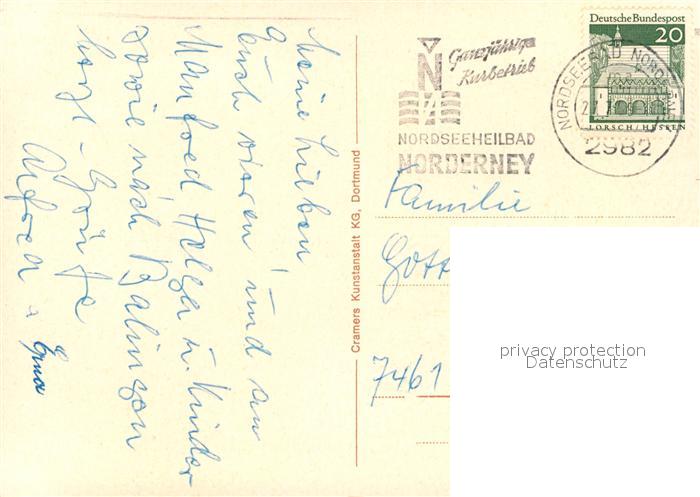 Meine Lieben!
Euch vieren und an
Manfred Helga u. Kinder
sowie nach Balingen
herzl. Grüße
Alfred u Erna
Cramers Kunstanstalt KG, Dortmund
Ganzjähriger
Kurbetrieb
N
NORDSEEHEILBAD
NORDERNEY
NORDSEEBAD NORDERNEY
2982
Deutsche Bundespost
20
LORSCH/HESSEN
Familie
7461
privacy protection
Datenschutz